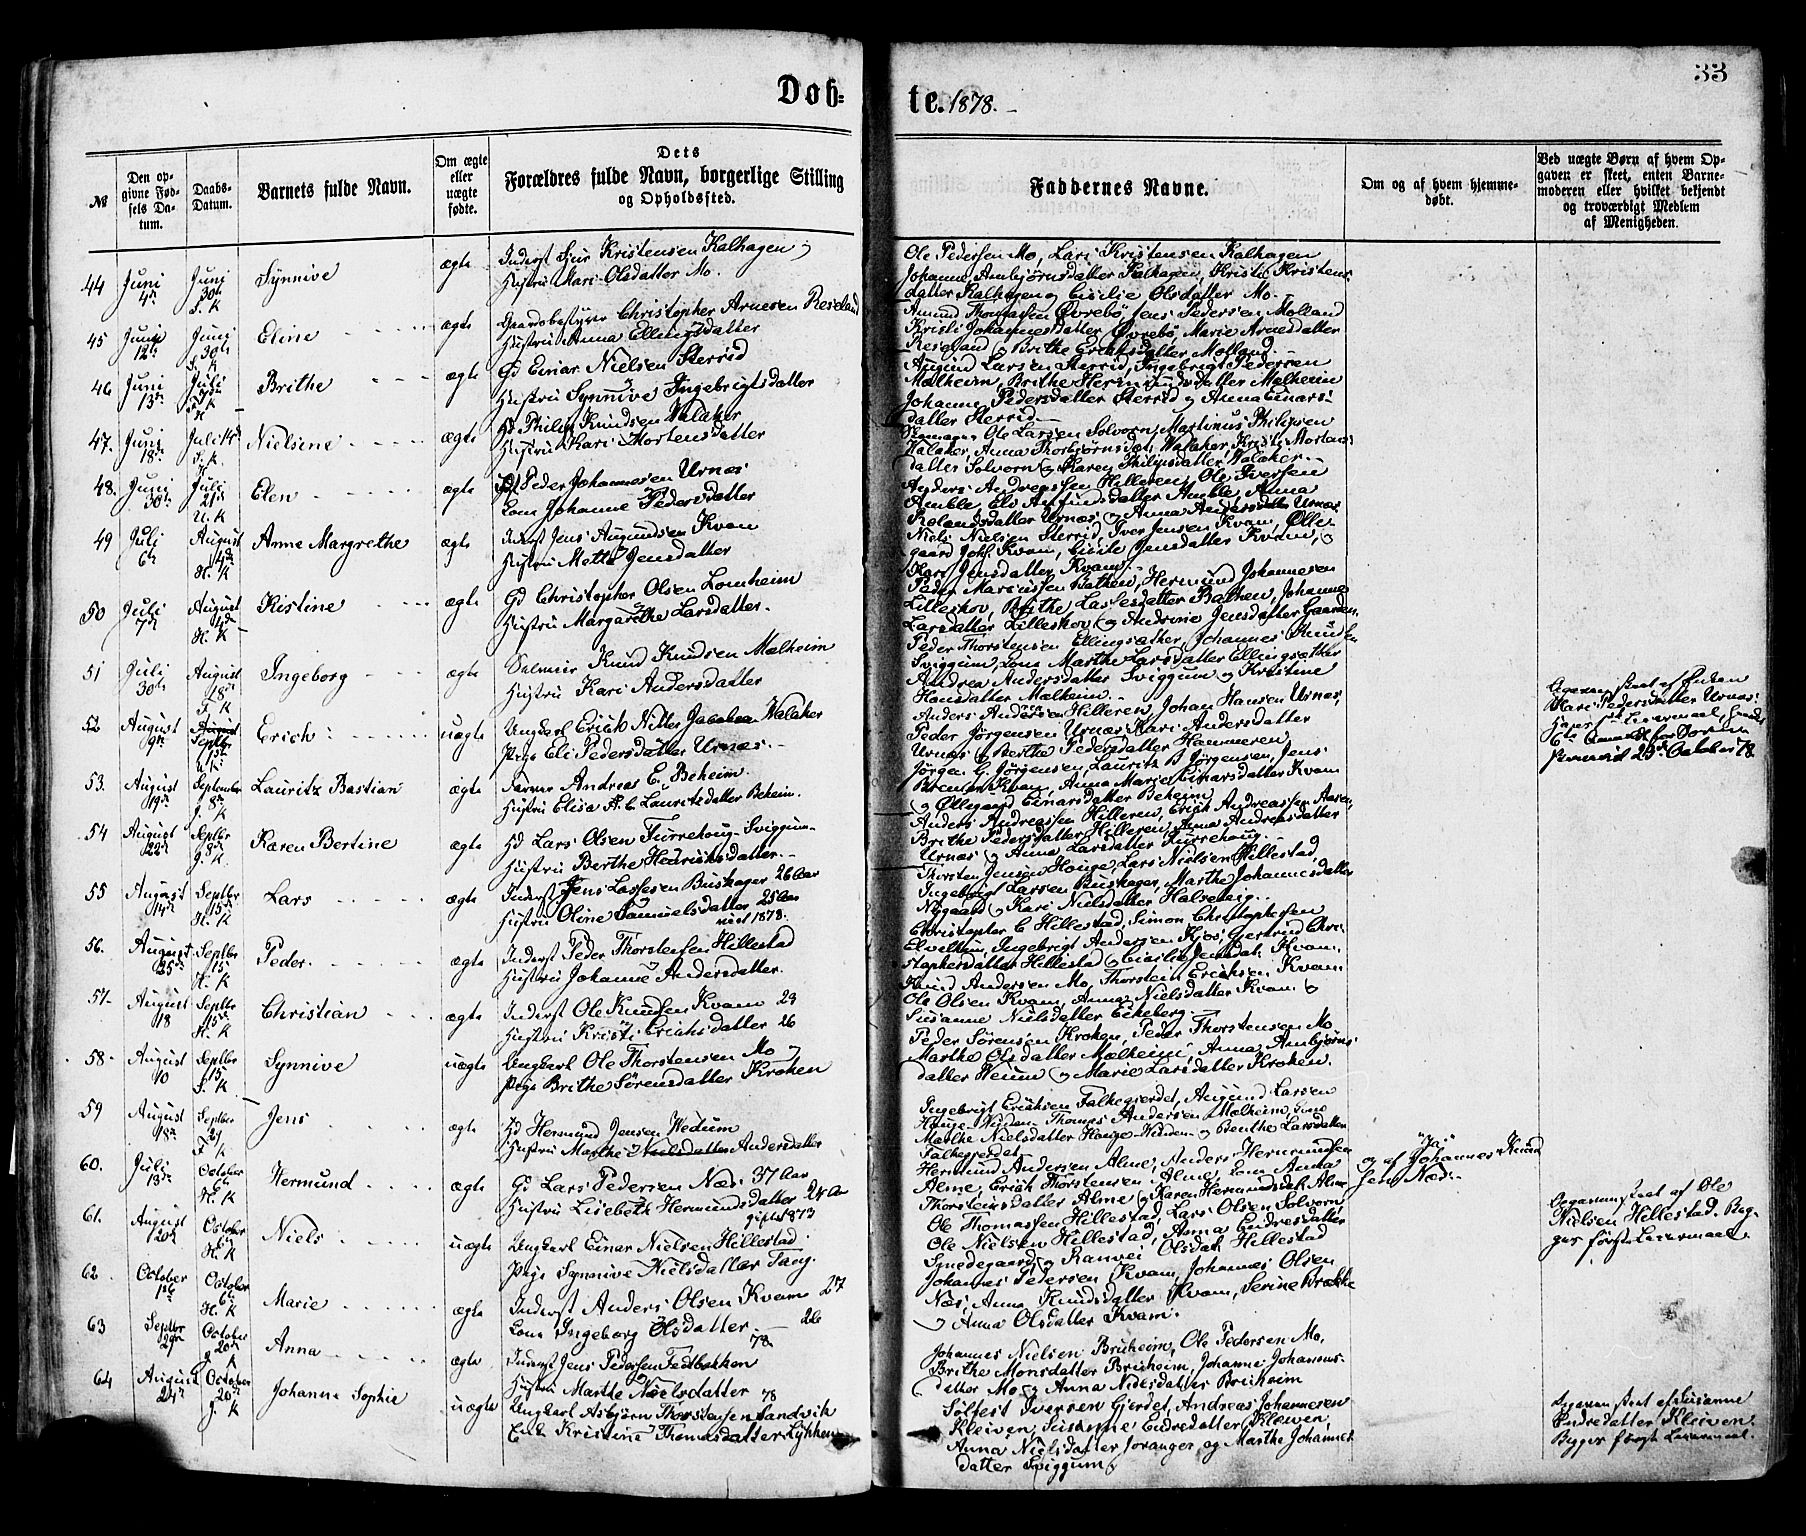 Døb=
te. 1878.
33
№
Den op-
givne Fød-
sels Da-
tum.
Daabs-
Datum.
Barnets fulde Navn.
Om ægte
eller
uægte
fødte.
Dets
Forældres fulde Navn, borgerlige Stilling
og Opholdssted.
Faddernes Navne.
Om og af hvem hjemme-
døbt.
Ved uægte Børn af hvem Op-
gaven er skeet, enten Barne-
moderen eller hvilket bekjendt
og troværdigt Medlem
af Menigheden.
44 Juni 4de Juni 30te S. K Synnive ægte
Inderst Sjur Kristensen Kalhagen
Hustru Mari Olsdatter Mo.
Ole Pedersen Mo, Lars Kristensen Kalhagen
Johanne Ambjørnsdatter Kalhagen, Kristi Kristens-
datter Kalhagen og Cicilie Olsdatter Mo.
45 Juni 12te Juni 30te S. K Eline ægte
Gaardbestyrer Christopher Arnesen Reseland
Hustru Anna Ellingsdatter
Amund Thomassen Øvrebø, Jens Pedersen Molland
Kristi Johannesdatter Øvrebø Marie Arnedatter
Reseland, Brithe Eriksdatter Molland.
46 Juni 13de Juli Brithe ægte
Gd Einar Nielsen Sterrid
Hustru Synnive Ingebrigtsdatter
Augund Larsen Sterrid, Ingebrigt Pedersen
Malheim, Brithe Hermundsdatter Mælheim
Johanne Pedersdatter Sterrid og Anna Einars-
datter Sterrid
47. Juni 18de Juli Nielsine ægte
Gd Philip Knudsen Walaker
Hustru Kari Mortensdatter
Ole Larsen Solvorn, Martinus Philipsen
Walaker, Anna Thorbjørnsdat, Walaker, Kristi Mortens
datter Solvorn og Karen Philipsdatter Walaker
48. Juni 30te Juli 21de U. K Elen ægte
Gd Peder Johannesen Urnæs
Kone Johanne Pedersdatter
Anders Andreassen Hilleren, Ole Iversen
Amble, Els Amundsdatter Amble, Anna
Rolandsdatter Urnæs og Anna Andersdatter Urnæs
49 Juli 6te August 4de H. K Anne Margrethe ægte
Inderst Jens Augundsen Kvam
Hustru Mette Jensdatter
Niels Nielsen Sterrid, Iver Jensen Kvam, Olle-
gaard Joh. Kvam, Cicile Jensdatter Kvam, og
Kari Jensdatter Kvam
50 Juli 7de August 4de H. K Kistine ægte
Gd Christopher Olsen Lomheim
Hustru Margrethe Larsdatter.
Peder Marcussen Bathen, Hermund Johannesen
Lilleskov, Brithe Lassesdatter Bathen, Johanne
Larsdatter Lilleskov og Andrine Jensdatter Gaarden
51 Juli 30te August 18de F. K Ingeborg ægte
Salmeir Knud Knudsen Mælheim
Hustru Kari Andersdatter
Peder Thorstensen Ellingsæter, Johannes Knudsen
Sviggum, Kone Marthe Larsdatter Ellingsæter
Andrea Andersdatter Sviggum og Kristine
Hansdatter Mælheim
52 August 9de Septbr 1ste U. K Erich uægte
Ungkarl Erich Nitter Jacobsen Walaker
Pige Eli Pedersdatter Urnæs.
Anders Andersen Hilleren, Johan Hansen Urnæs,
Peder Jørgensen Urnæs Kari Andersdatter
Urnæs og Berthe Pedersdatter Hammeren
Opgaven skeet af Enken
Mari Pedersdatter Urnæs.
53. August 19de September 8de J. K Lauritz Bastian ægte
Farver Andreas E. Beheim.
Hustru Elisa A. C Lauritzdatter Beheim.
Jørgen G. Jørgensen, Lauritz B Jørgensen, Jens
Berntsen Kvam, Anna Marie Einarsdatter Kvam
og Øllegaard Einarsdatter Beheim
54 August 22de Septbr 8de J. K Karen Bertine ægte
Gd Lars Olsen Furrehoug-Sviggum
Hustru Berthe Hedricksdatter.
Anders Andreassen Hilleren, Erich Andreassen Aasen,
Brithe Pedersdatter Hilleren, Anna Andreasdatter
Urnæs og Anna Larsdatter Furrehoug
55 August 14de Septbr 15de H. K Lars ægte
Inderst Jens Lassesen Buskager 26 Aar
Hustru Oline Samuelsdatter 25 Aar
viet 1878.
Thorsten Jensen Houge, Lars Nielsen Hillestad
Ingebrigt Larsen Buskager, Marthe Johannesdatter
Nygaard og Kari Nielsdatter Halsveig
56. August 25de Septbr 15de H. K Peder ægte
Inderst Peder Thorstensen Hillestad
Hustru Johanne Andersdatter.
Christopher C Hillestad, Simon Christophersen
Elvethun, Ingebrigt Andersen Kjos, Gertrud Chri-
stophersdatter Hillestad og Cicilie Jensdat. Kvam.
57 August 18 Septbr 15de H. K Christian ægte
Inderst Ole Knudsen Kvam 23
Hustru Kristi Erichsdatter 26
Knud Andersen Mo, Thorstein Erichsen Kvam
Ole Olsen Kvam, Anna Nielsdatter Kvam og
Susanne Nielsdatter Eikeberg
58 August 10 Septbr 15de F. K Synnive uægte
Ungkarl Ole Thorstensen Mo og
Pige Brithe Sørensdatter Kroken
Peder Sørensen Kroken, Peder Thorstensen Mo
Marthe Olsdatter Mælheim, Anna Ambjørns-
datter Weum og Marie Larsdatter Kroken.
59 August 18de Septbr 29 F. K Jens ægte
Gd Hermund Jensen Wedum
Hustru Marthe Nielsdatter Andersdatter
Ingebrigt Erichsen Falkegjerdet, Augund Larsen
Houge-Widden Thomas Andersen Mælheim, Gine
Marthe Nielsdatter Houge-Widden og Benthe Larsdatter
Falkegjerdet
60. Juli 13de October 6te H. K Hermund ægte
Gd Lars Pedersen Næs 37 Aar
Hustru Lisebeth Hermundsdatter 24 Aar
gifte 1873
Hermund Andersen Alme, Anders Hermundsen
Alme, Erich Thorstensen Alme, Kone Anna
Thorsteinsdatter Alme og Karen Hermundsdat. Alme
"Ja"
og af Johannes Knud
sen Næs.
61. August 20de October 6te H. K Niels uægte
Ungkarl Einar Nielsen Hillestad
Pige Synnive Nielsdatter Taug.
Ole Thomassen Hillestad, Lars Olsen Solvorn,
Ole Nielsen Hillestad, Anna Endresdatter
Smedegaard og Ranvei Olsdat. Hillestad
Opgaven skeet af Ole
Nielsen Hillestad. Beg-
ges første Leiermaal.
62. October 1ste October 6te H. K Marie ægte
Inderst Anders Olsen Kvam 27
Kone Ingeborg Olsdatter 26
78
Johannes Pedersen Kvam, Johannes Olsen
Næs, Anna Knudsdatter Kvam, Serine Brække
og Anna Olsdatter Kvam.
63 Septbr 29de October 20de J. K Anna ægte
Inderst Jens Pedersen Fedtbakken
Hustru Marthe Nielsdatter 78
Johannes Nielsen Bruheim, Ole Pedersen Mo,
Brithe Monsdatter Bruheim, Johanne Johannes-
datter Mo og Anna Nielsdatter Bruheim
64 August 24de October 20de J. K Johanne Sophie uægte
Ungkarl Asbjørn Thorstensen Sandvik
Enke Kristine Thomasdatter Lykken
Sølfest Iversen Gjerdet, Andreas Johannesen
Kleiven, Susanne Endredatter Kleiven,
Anna Nielsdatter Joranger og Marthe Johannes
datter Sviggum
Opgaven skeet af Susanne
Endredatter Kleiven.
Begges første Leiermaal.